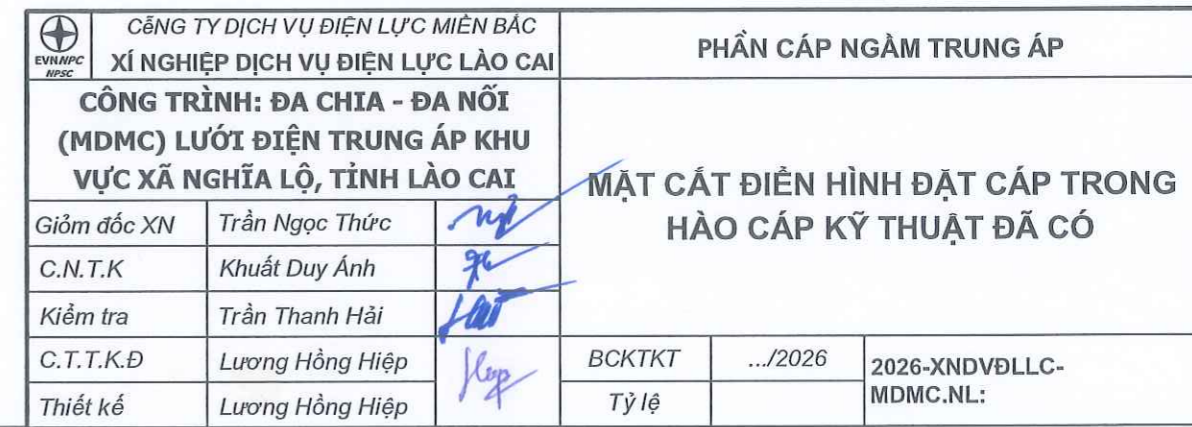 EVNNPC
NPSC
CễNG TY DỊCH VỤ ĐIỆN LỰC MIỀN BẮC
XÍ NGHIỆP DỊCH VỤ ĐIỆN LỰC LÀO CAI
PHẦN CÁP NGẦM TRUNG ÁP
CÔNG TRÌNH: ĐA CHIA - ĐA NỐI
(MDMC) LƯỚI ĐIỆN TRUNG ÁP KHU
VỰC XÃ NGHĨA LỘ, TỈNH LÀO CAI
MẶT CẮT ĐIỂN HÌNH ĐẶT CÁP TRONG
HÀO CÁP KỸ THUẬT ĐÃ CÓ
Giỏm đốc XN Trần Ngọc Thức
C.N.T.K Khuất Duy Ánh
Kiểm tra Trần Thanh Hải
C.T.T.K.Đ Lương Hồng Hiệp
BCKTKT .../2026
2026-XNDVĐLLC-
MDMC.NL:
Thiết kế Lương Hồng Hiệp
Tỷ lệ